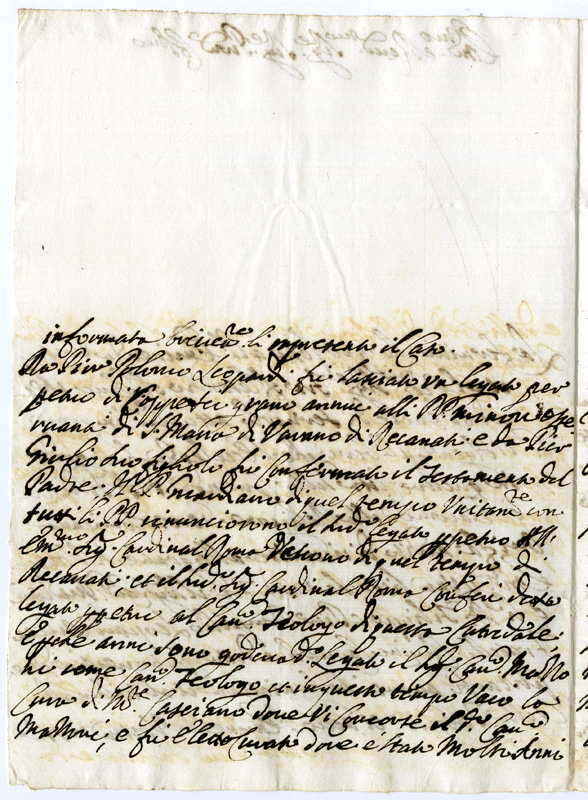 informata brevem.te li rapresento il Caso.
Da Pier Polonio Leopardi fu lasciato un legato per
petuo di Coppe sei grano annui alli PP. minori osse
rvanti di S. Maria di Varano di Recanati, e da Pier
Giulio suo figliolo fu Confermato il Testamento del
Padre. Il P. Guardiano di quel tempo Unitam.te con
tutti li PP. rinunciorono il sud.o legato perpetuo all'
Em.mo Sig.r Cardinal Roma Vescovo di quel tempo di
Recanati, et il sud.o Sig.r Cardinal Roma Conferì detto
legato perpetuo al Can.co Teologo di questa Catedrale,
e anni sono godeva d.o Legato il Sig.r Can.co
ni come Can.co Teologo et in questo tempo Vacò la
Cura di M.te Casciano dove Vi Concorse il d.o Can.co
e fu eletto Curato dove è stato Molti Anni